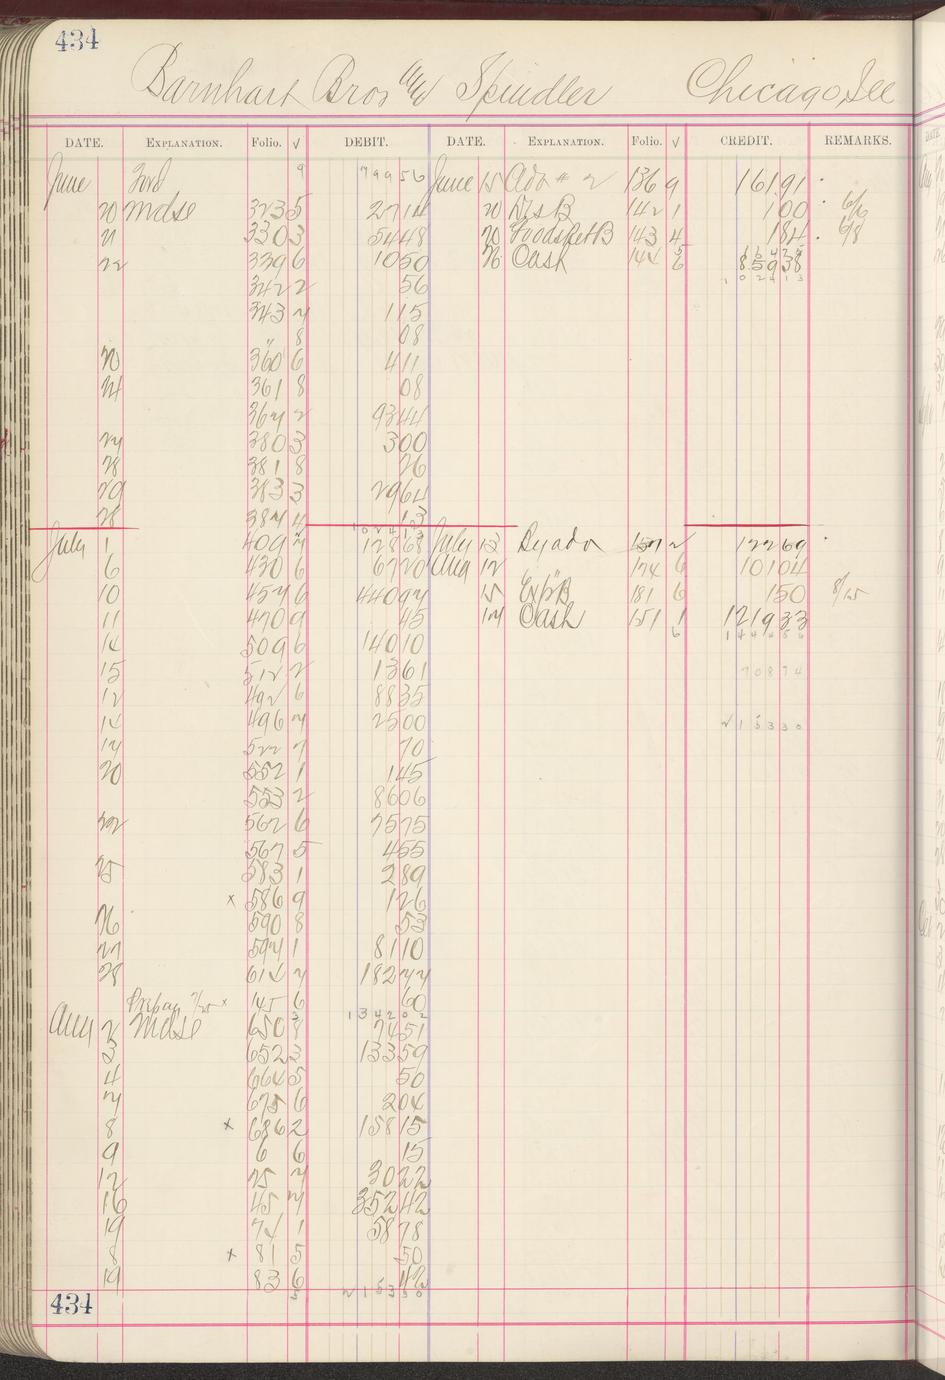 434
Barnhart Bros and Spindler Chicago, Ill
DATE. EXPLANATION. Folio. √ DEBIT. DATE. EXPLANATION. Folio. √ CREDIT. REMARKS.
June Ford 9 799 56 June 15 Adv # 2 136 9 161 91
20 Mdse 323 5 27 14 20 Dis B 142 1 1 00 6/6
21 330 3 54 48 20 B 143 4 1 84 6/8
22 339 6 10 50 26 Cash 144 6 859 38
342 2 56 1 0 2 4 1 3
343 7 1 15
" 8 08
20 360 6 4 11
24 361 8 08
367 2 93 44
27 380 3 3 00
28 381 8 26
29 383 3 29 64
28 387 4 13
1 0 2 4 1 3
July 1 409 7 128 68 July 13 By adv 157 2 122 69
6 430 6 67 20 Aug 12 " 174 6 101 04
10 457 6 440 97 15 Exp B 181 6 1 50 8/15
11 470 9 45 17 Cash 151 1 1219 33
14 509 6 140 10 6 1 4 4 4 5 6
15 512 2 13 61 7 0 8 7 4
12 492 6 88 35
14 496 7 25 00 2 1 5 3 3 0
17 522 7 70
20 552 1 1 45
553 2 86 06
22 562 6 75 75
567 5 4 55
25 583 1 2 89
x 586 9 1 26
26 590 8 53
27 597 1 81 10
28 614 7 182 77
Prepay 7/25 x 145 6 60
3 1 3 4 2 0 2
Aug 2 Mdse 650 8 74 51
3 652 3 133 59
4 664 5 50
7 675 6 2 04
8 x 686 2 158 15
9 6 6 15
12 25 7 30 22
16 45 7 352 42
19 74 1 58 78
8 x 81 5 50
19 83 6 42
5 2 1 5 3 3 0
434